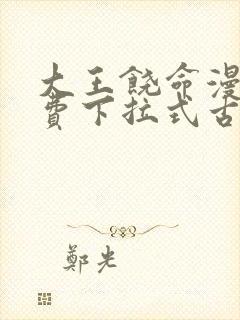 大王饶命漫
费下拉式古
鄭光